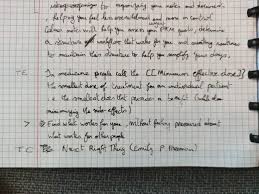 to organising your notes and
helping you feel less overwhelmed and more in control
notes will help you assess your goals, determine
a structure & workflow that works for you and creating routines
to maintain this structure to help you simplify your days.
TC In medicine people call the [[Minimum effective dose]]
the smallest dose of treatment for an individual patient
i.e the smallest dose that provides a benefit (while also
minimising the side-effects)
> Find what works for you, without feeling pressured about
what works for other people
TC Next Right Thing (Emily P Freeman)